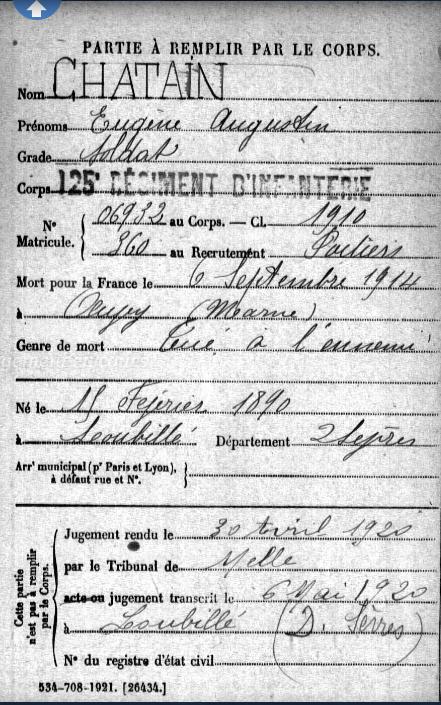 PARTIE À REMPLIR PAR LE CORPS.
Nom CHATAIN
Prénoms Eugène Augustin
Grade Soldat
Corps 125e RÉGIMENT D'INFANTERIE
No Matricule. { 06932 au Corps. — Cl. 1910
360 au Recrutement Poitiers
Mort pour la France le 6 Septembre 1914
à (Marne)
Genre de mort Tué à l'ennemi
Né le Février 1890
à Loubillé Département 2 Sèvres
Arrt municipal (pr Paris et Lyon), à défaut rue et No. }
Cette partie n'est pas à remplir par le Corps.
Jugement rendu le 30 Avril 1920
par le Tribunal de Melle
acte ou jugement transcrit le 6 Mai 1920
à Loubillé (D. Sèvres)
No du registre d'état civil
534-708-1921. [26434.]